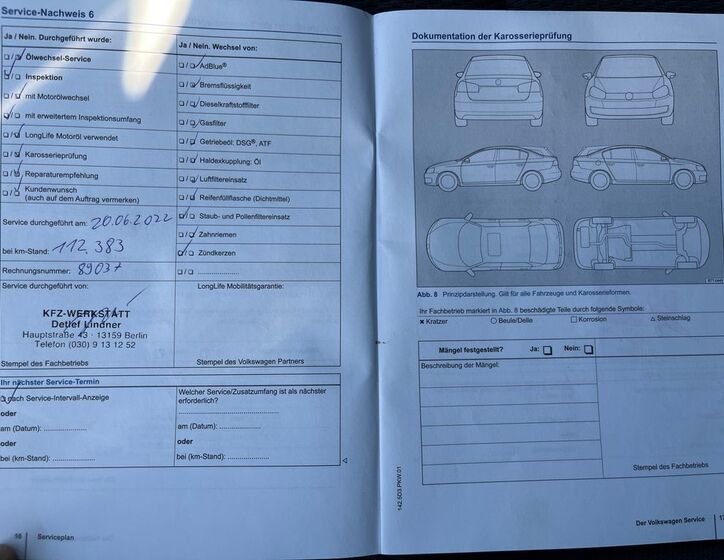 Service-Nachweis 6
Ja / Nein. Durchgeführt wurde:
Ölwechsel-Service
Inspektion
mit Motorölwechsel
mit erweitertem Inspektionsumfang
LongLife Motoröl verwendet
Karosserieprüfung
Reparaturempfehlung
Kundenwunsch
(auch auf dem Auftrag vermerken)
Service durchgeführt am: 20.06.2022
bei km-Stand: 112.383
Rechnungsnummer: 89037
Service durchgeführt von:
KFZ-WERKSTATT
Detlef Lindner
Hauptstraße 43 · 13159 Berlin
Telefon (030) 9 13 12 52
Stempel des Fachbetriebs
Ja / Nein. Wechsel von:
AdBlue®
Bremsflüssigkeit
Dieselkraftstofffilter
Gasfilter
Getriebeöl: DSG®, ATF
Haldexkupplung: Öl
Luftfiltereinsatz
Reifenfüllflasche (Dichtmittel)
Staub- und Pollenfiltereinsatz
Zahnriemen
Zündkerzen
LongLife Mobilitätsgarantie:
Stempel des Volkswagen Partners
Ihr nächster Service-Termin
nach Service-Intervall-Anzeige
oder
am (Datum): ..................
oder
bei (km-Stand): ..................
Welcher Service/Zusatzumfang ist als nächster
erforderlich?
am (Datum): ..................
oder
bei (km-Stand): ..................
Serviceplan
Dokumentation der Karosserieprüfung
Abb. 8 Prinzipdarstellung. Gilt für alle Fahrzeuge und Karosserieformen.
Ihr Fachbetrieb markiert in Abb. 8 beschädigte Teile durch folgende Symbole:
× Kratzer ○ Beule/Delle □ Korrosion △ Steinschlag
Mängel festgestellt? Ja: □ Nein: □
Beschreibung der Mängel:
Stempel des Fachbetriebs
142.5D3.PKW.01
Der Volkswagen Service